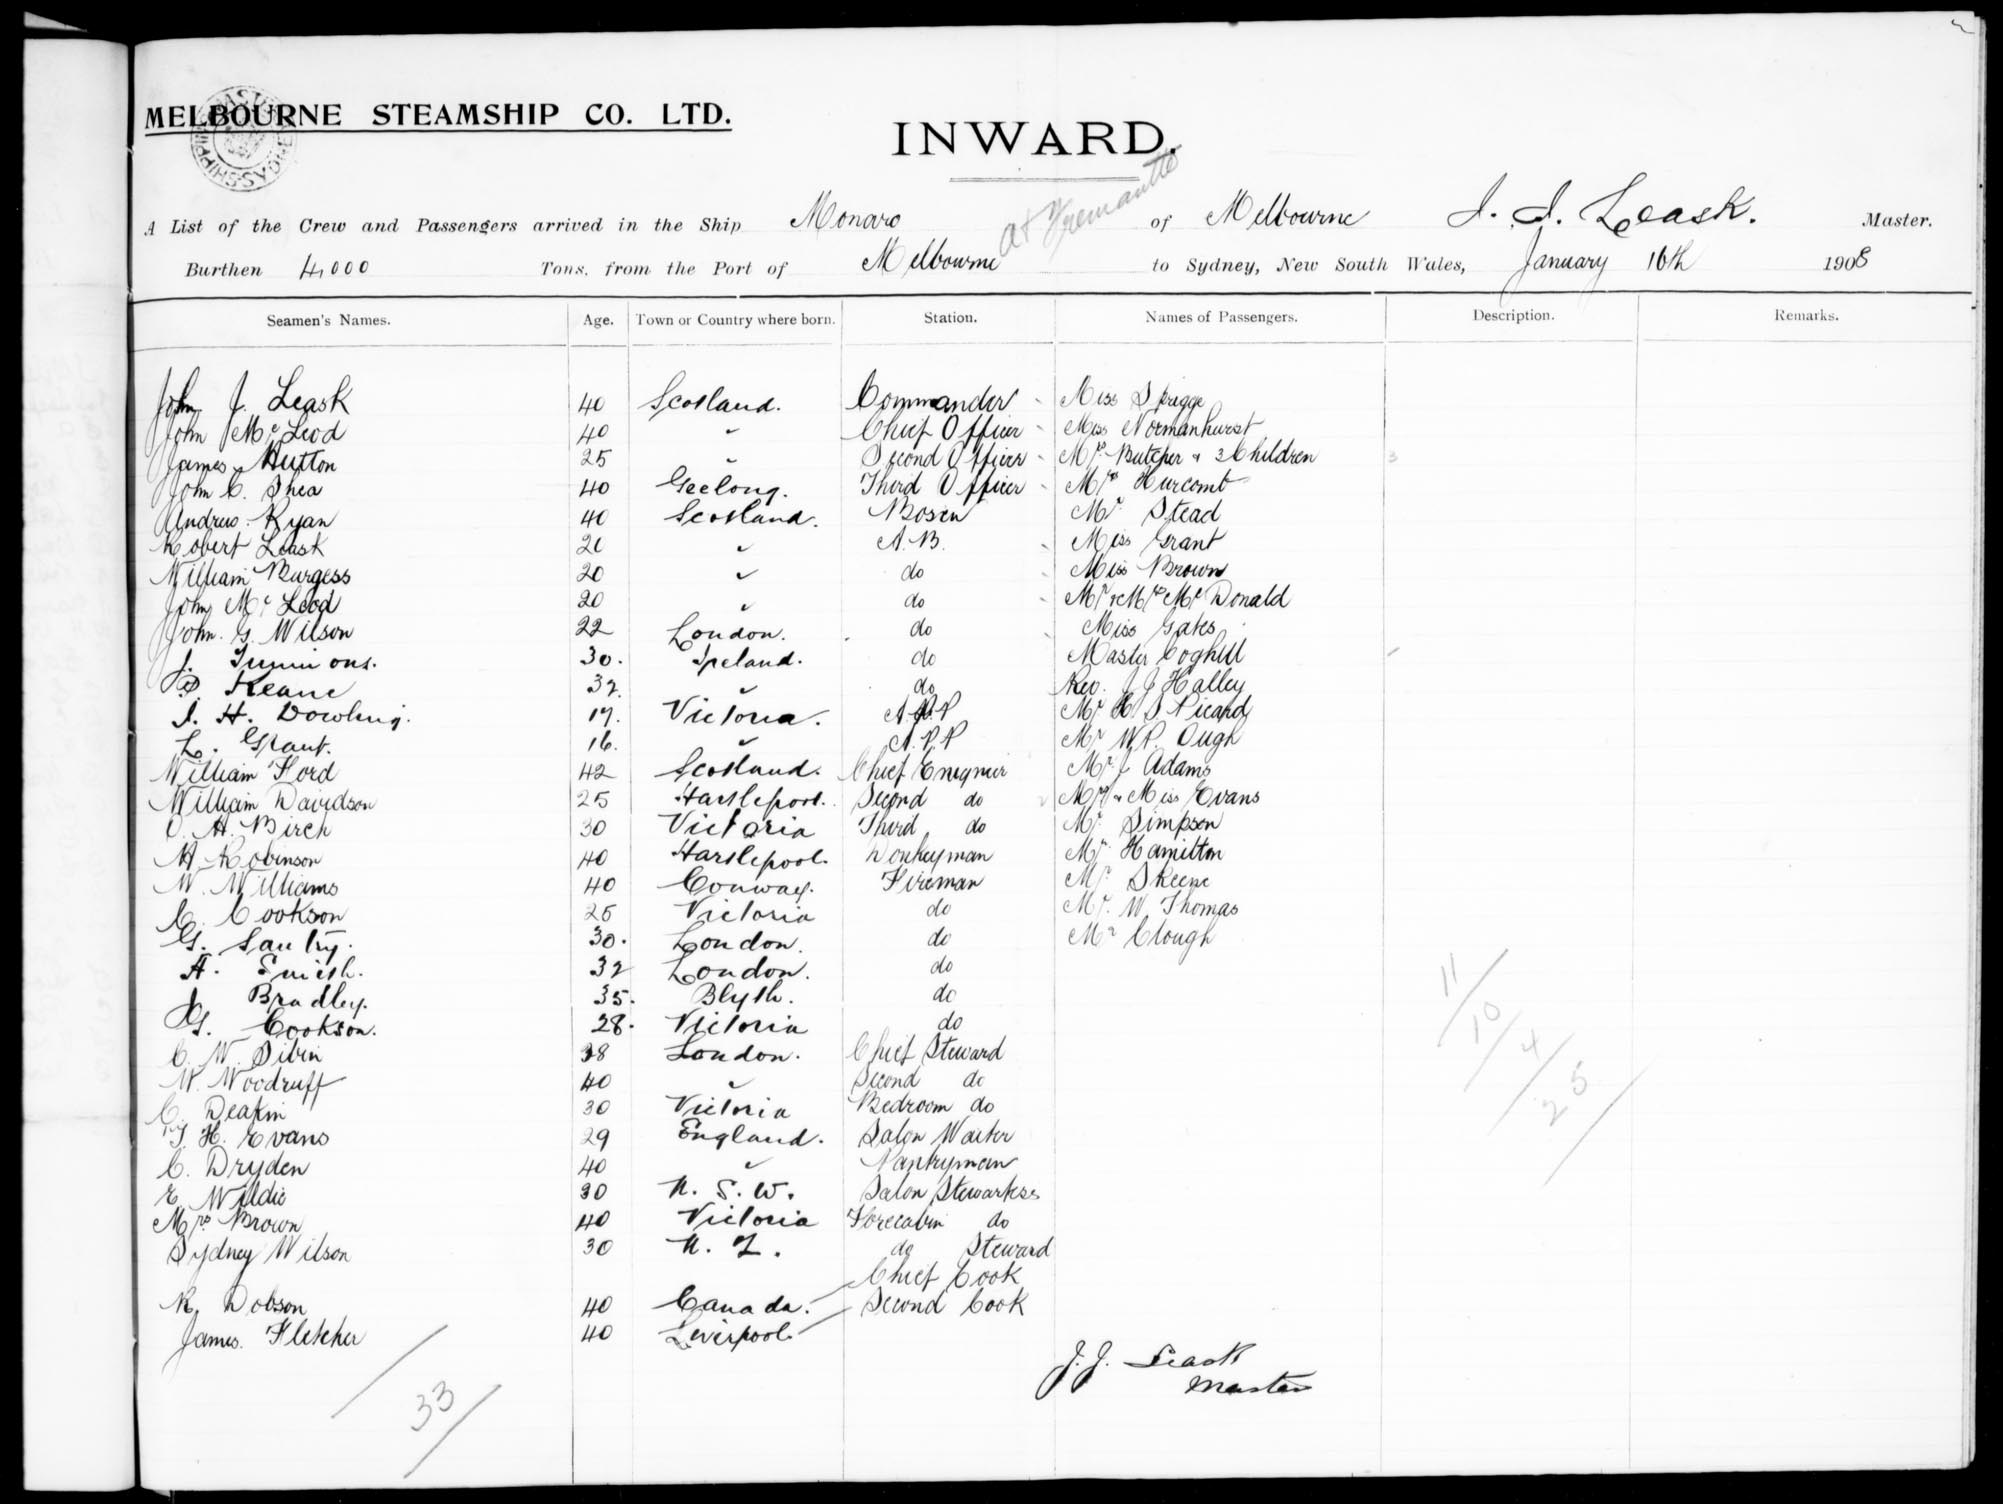 MELBOURNE STEAMSHIP CO. LTD.
INWARD.
at Fremantle
A List of the Crew and Passengers arrived in the Ship Monaro of Melbourne J. J. Leask. Master.
Burthen 4,000 Tons, from the Port of Melbourne to Sydney, New South Wales, January 16th 1908
Seamen's Names. Age. Town or Country where born. Station. Names of Passengers. Description. Remarks.
John J. Leask 40 Scotland. Commander Miss Sprigge
John McLeod 40 " Chief Officer Miss Normanhurst
James Hutton 25 " Second Officer Mrs Butcher & 3 Children 3
John C. Shea 40 Geelong. Third Officer Mrs Hurcomb
Andrew Ryan 40 Scotland. Bosin Mr Stead
Robert Leask 20 " A.B. Miss Grant
William Burgess 20 " do Miss Brown
John McLeod 20 " do Mr & Mrs McDonald
John. G. Wilson 22 London. do Miss Gates
J. 30. Ireland. do Master Coghill
P. Keane 32. " do Rev. J J Halley
J. H. Dowling. 17. Victoria. A.P.P Mr H. S. Picard
L. Grant. 16. " A.P.P Mr W.P. Ough
William Ford 42 Scotland. Chief Engineer Mr J Adams
William Davidson 25 Hartlepool. Second do Mrs & Miss Evans
C. H. Birch 30 Victoria Third do Mr Simpson
A. Robinson 40 Hartlepool. Donkeyman Mr Hamilton
W. Williams 40 Conway. Fireman Mr Skene
C. Cookson 25 Victoria do Mr. W. Thomas
G. Santry. 30. London. do Mr Clough
A. Smith. 32 London. do
J. Bradley. 35. Blyth. do
G. Cookson. 28. Victoria do
C. W. Sibin 38 London. Chief Steward
W. Woodruff 40 " Second do
C. Deakin 30 Victoria Bedroom do
T. H. Evans 29 England. Salon Waiter
C. Dryden 40 " Pantryman
E. Wildie 30 N. S. W. Salon Stewardess
Mrs Brown 40 Victoria Forecabin do
Sydney Wilson 30 N. Z. do Steward
Chief Cook
R. Dobson 40 Canada. Second Cook
James. Fletcher 40 Liverpool.
J. J. Leask
Master
33
11/10/4/25